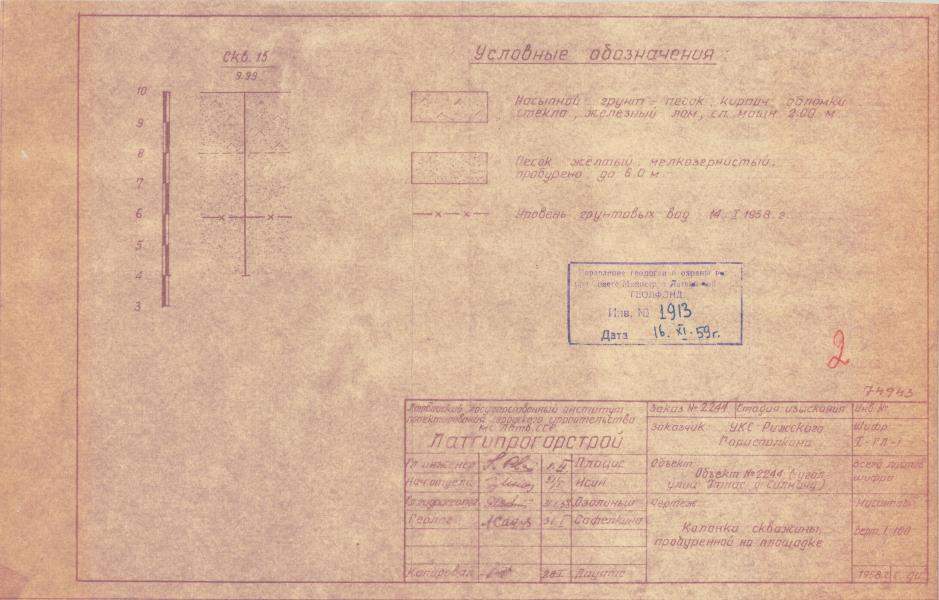 Скв. 15
9.99
10
9
8
7
6
5
4
3
Условные обозначения
Насыпной грунт - песок, кирпич, обломки
стекла, железный лом, сл. мощн 2.00 м
Песок жёлтый мелкозернистый,
пробурено до 6.0 м
Уровень грунтовых вод 14. I 1958 г.
Управление геологии и охраны
при Совете Министров Латвийской
ГЕОЛФОНД
Инв. № 1913
Дата 16. XI. 59г.
2
74943
Латвийский государственный институт
проектирования городского строительства
МС Латв. ССР
Латгипрогорстрой
Гл инженер Плацис
Нач отдела
Озолиньш
Геолог Сафелкина
Копировал
Заказ № 2244 Стадия изыскания Инв №
Заказчик: УКС Рижского
Горисполкома
Шифр
Объект
Объект № 2244 (угол
улиц Этнас и
всего листов
шифров
Чертеж
Колонка скважины,
пробуренной на площадке
Масштабы
Верт. 1:100
1958 г.